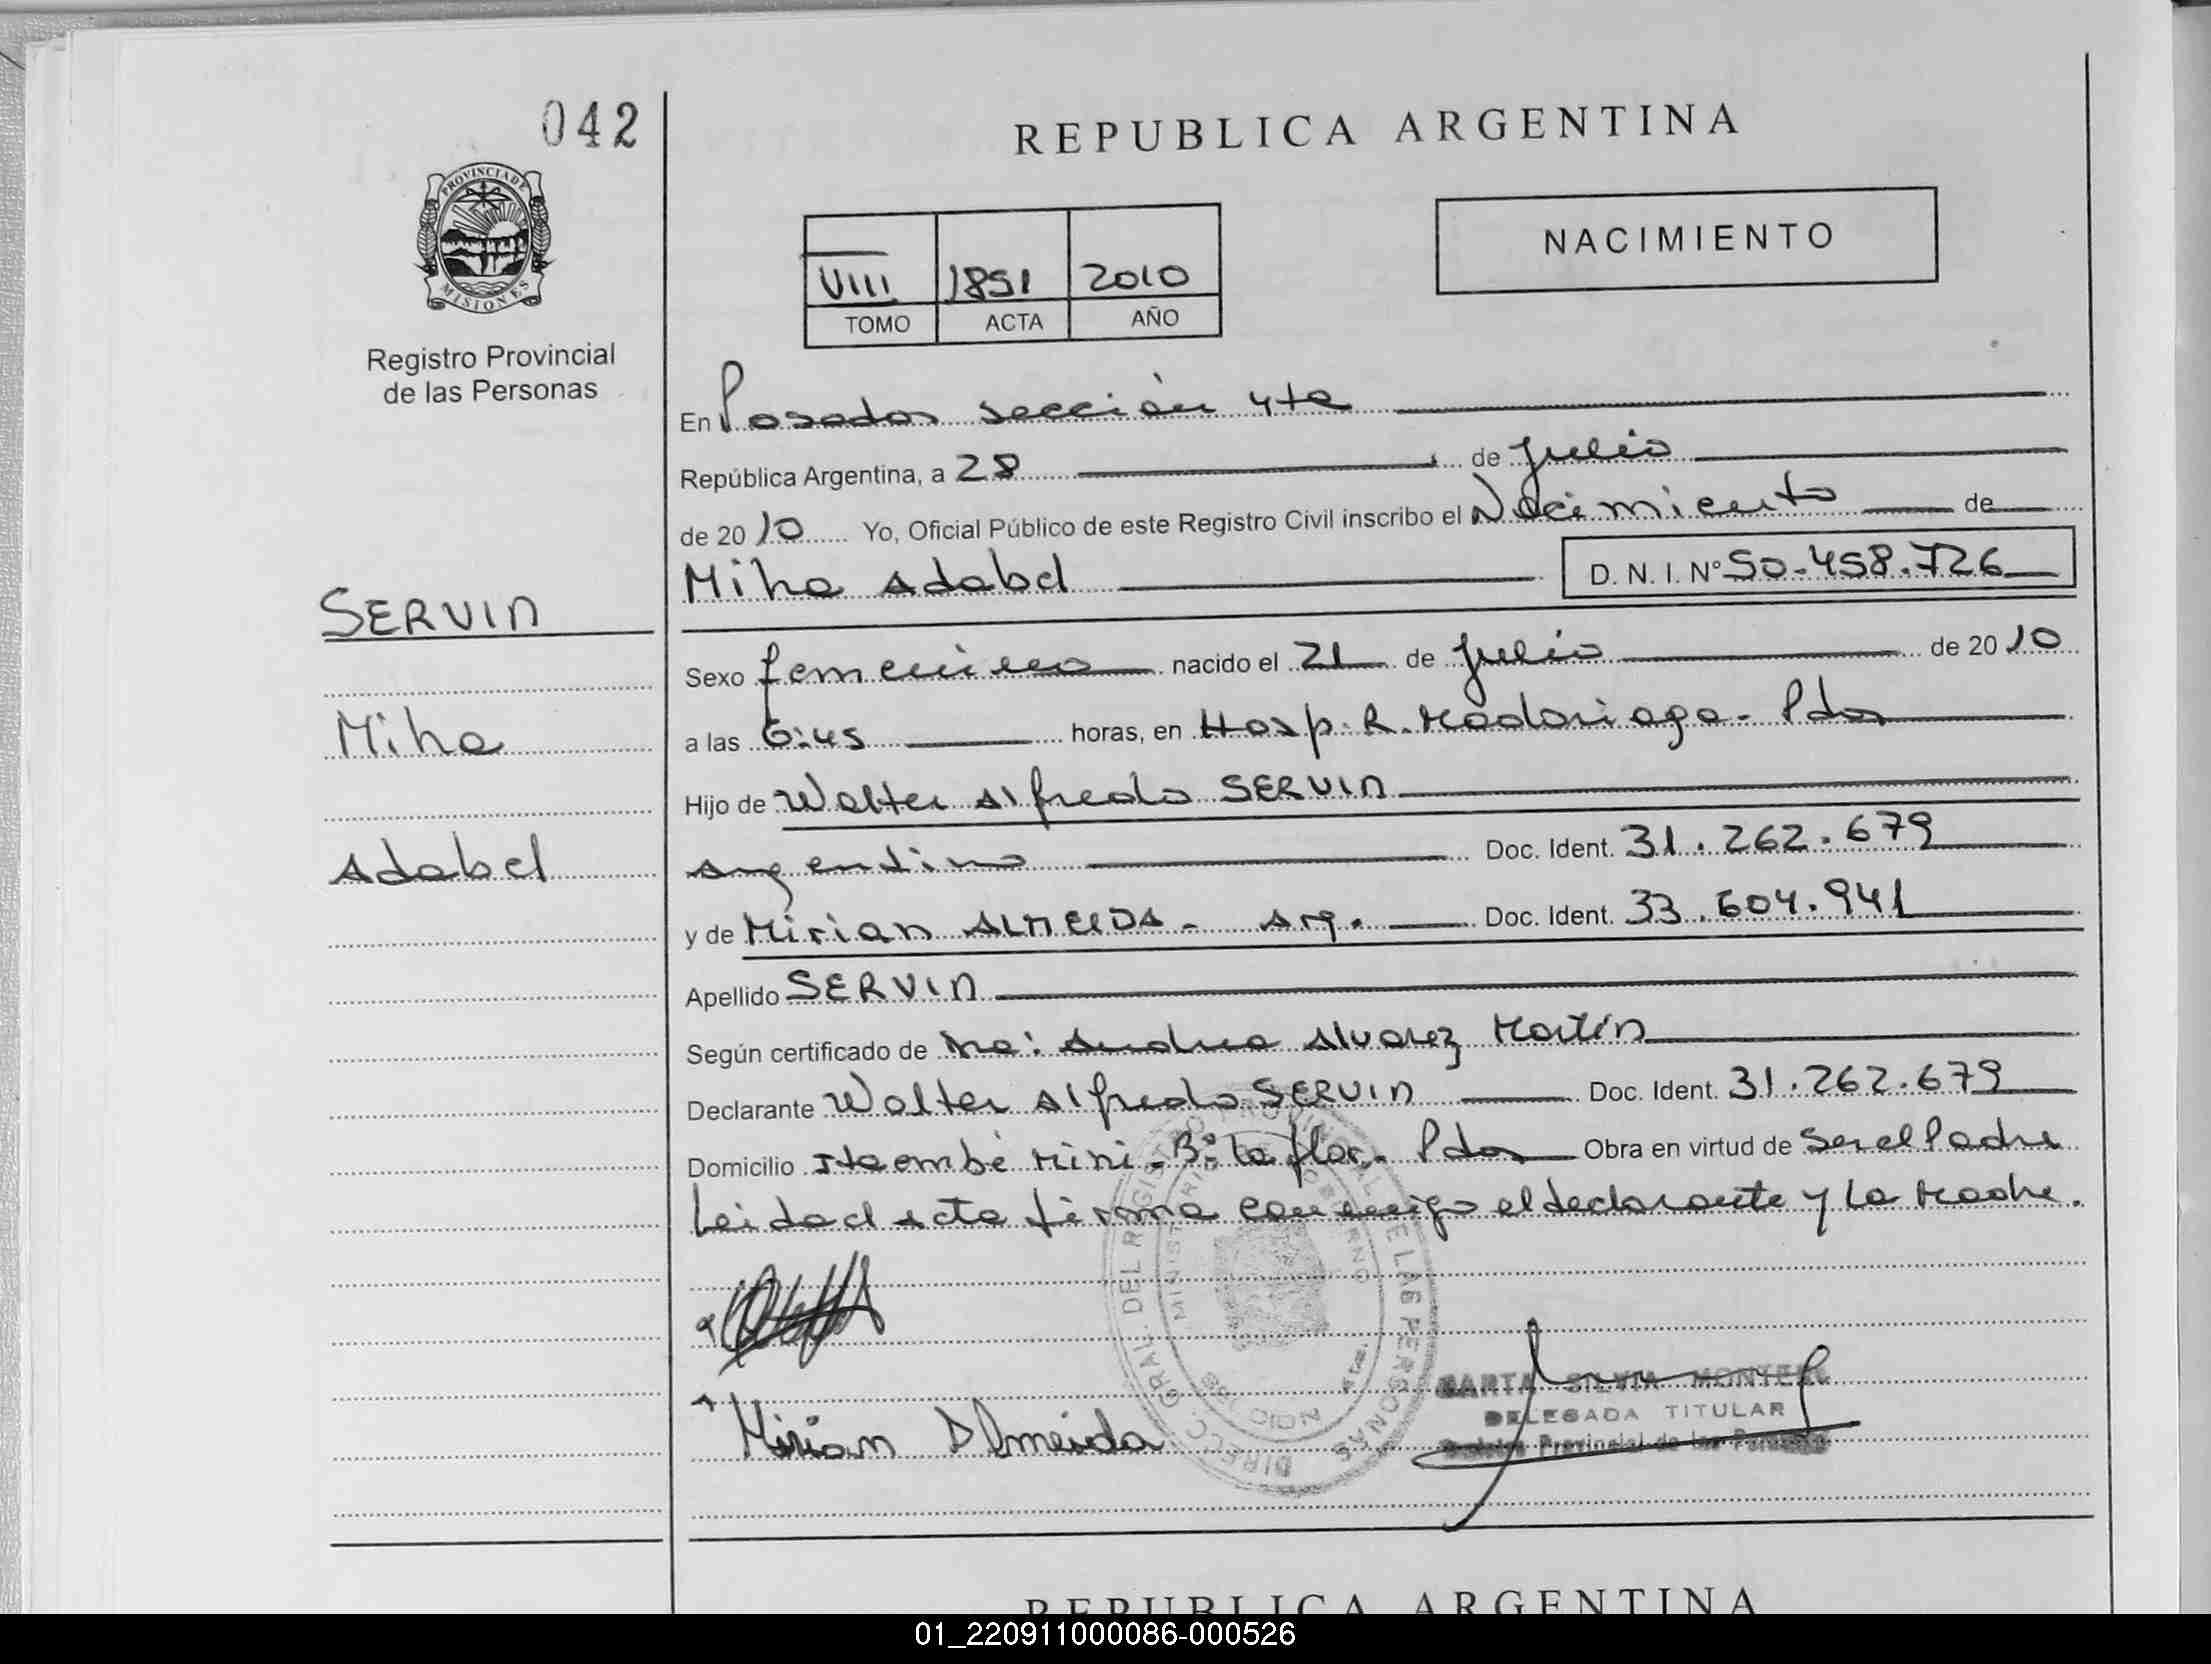 042
PROVINCIA DE
MISIONES
Registro Provincial
de las Personas
SERVIN
Miha
Adabel
REPUBLICA ARGENTINA
NACIMIENTO
VIII 1851 2010
TOMO ACTA AÑO
En Posadas sección 4ta
República Argentina, a 28 de Julio
de 2010 Yo, Oficial Público de este Registro Civil inscribo el Nacimiento de
Miha Adabel D. N. I. Nº 50.458.726
Sexo femenino nacido el 21 de Julio de 2010
a las 6:45 horas, en Hosp. R. Madariaga - Pdas
Hijo de Walter Alfredo SERVIN
Argentino Doc. Ident. 31.262.679
y de Mirian ALMEIDA - Arg. Doc. Ident. 33.604.941
Apellido SERVIN
Según certificado de Andrea Alvarez Martín
Declarante Walter Alfredo SERVIN Doc. Ident. 31.262.679
Domicilio Itaembé Mini - Bº La flor - Pdas Obra en virtud de Ser el Padre
Leida el acta firma conmigo el declarante y La Madre.
Mirian Almeida
SILVIA
DELEGADA TITULAR
Registro Provincial de las Personas
REPUBLICA ARGENTINA
01_220911000086-000526